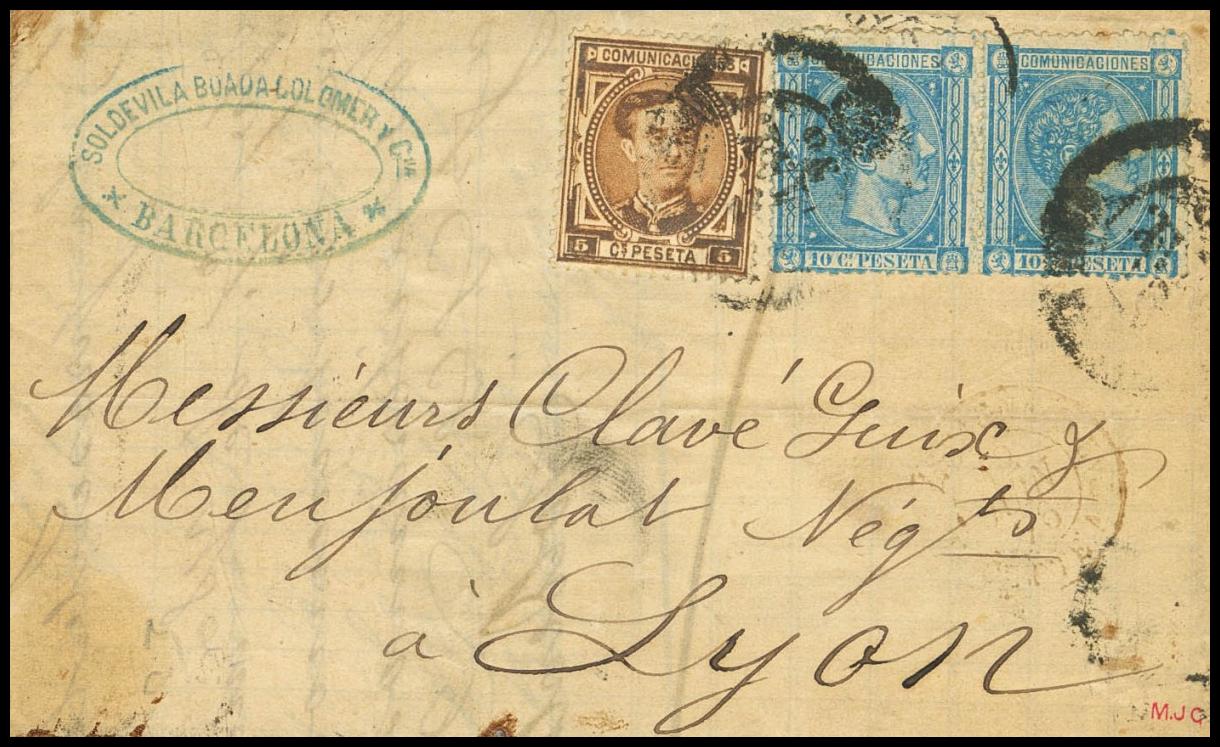 SOLDEVILA BUADA COLOMER Y Cᴵᴬ
* BARCELONA *
COMUNICACIONES
5 Cˢ PESETA 5
COMUNICACIONES
10 Cˢ PESETA
COMUNICACIONES
10 Cˢ PESETA
Messieurs Clavé Guix &
Menjoulat Négᵗˢ
à Lyon
M.J C